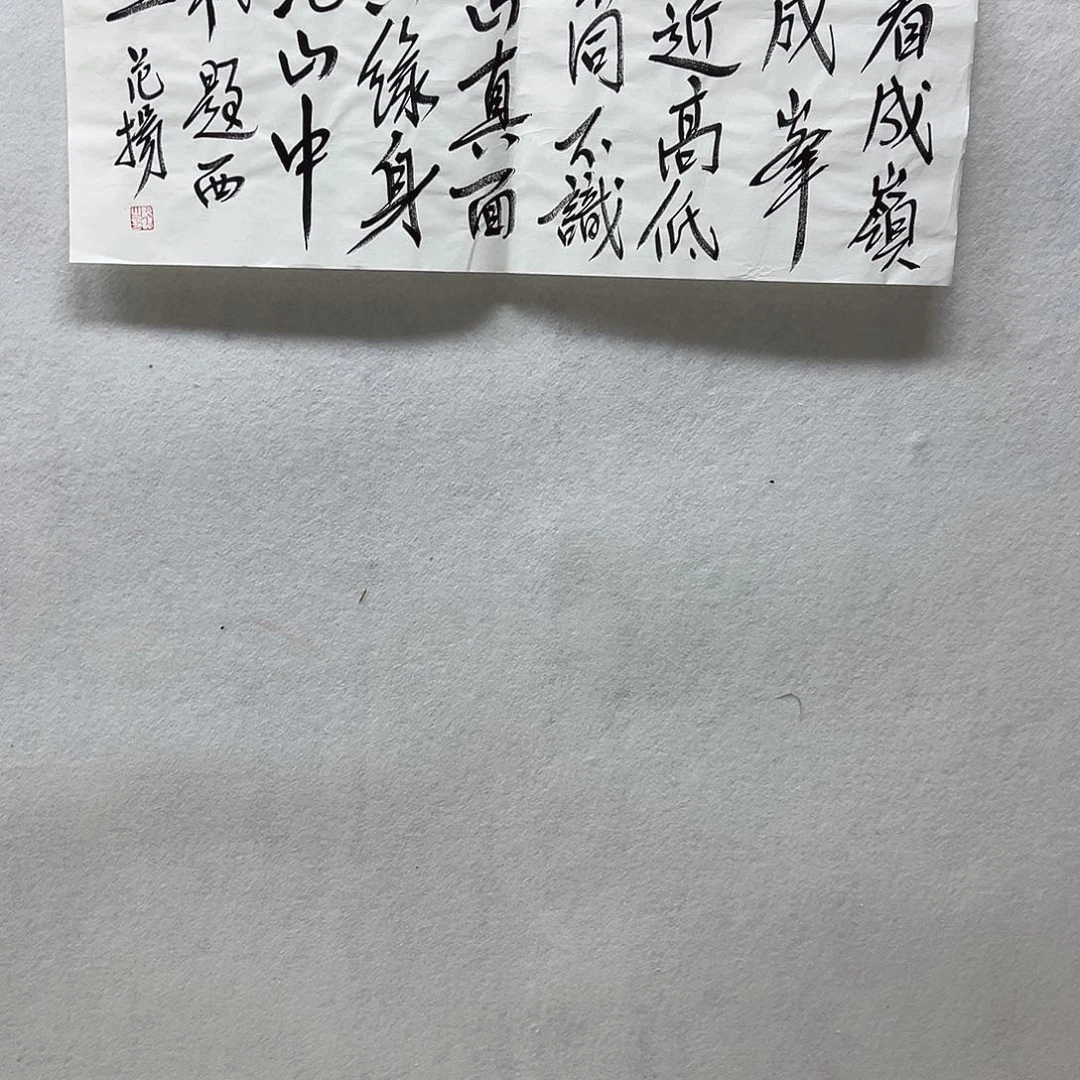 看成嶺
成峯
近高低
同不識
山真面
緣身
山中
題西
范揚